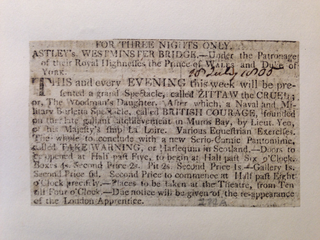 FOR THREE NIGHTS ONLY.
ASTLEY's WESTMINSTER BRIDGE.—Under the Patronage
of their Royal Highnesses the Prince of WALES and Duke of
YORK.
18 July, 1805
THIS and every EVENING this week will be pre-
sented a grand Spectacle, called ZITTAW the CRUEL;
or, The Woodman's Daughter. After which, a Naval and Mi-
litary Burletta Spectacle, called BRITISH COURAGE, founded
on the late gallant atchievement in Muros Bay, by Lieut. Yeo,
of his Majesty's ship La Loire. Various Equestrian Exercises.
The whole to conclude with a new Serio-Comic Pantomime,
called TAKE WARNING, or Harlequin in Scotland.—Doors to
be opened at Half past Five, to begin at Half past Six o'Clock.
Boxes 4s. Second Price 2s. Pit 2s. Second Price 1s.—Gallery 1s.
Second Price 6d. Second Price to commence at Half past Eight
o'Clock precisely.—Places to be taken at the Theatre, from Ten
till Four o'Clock.—Due notice will be given of the re-appearance
of the London Apprentice.